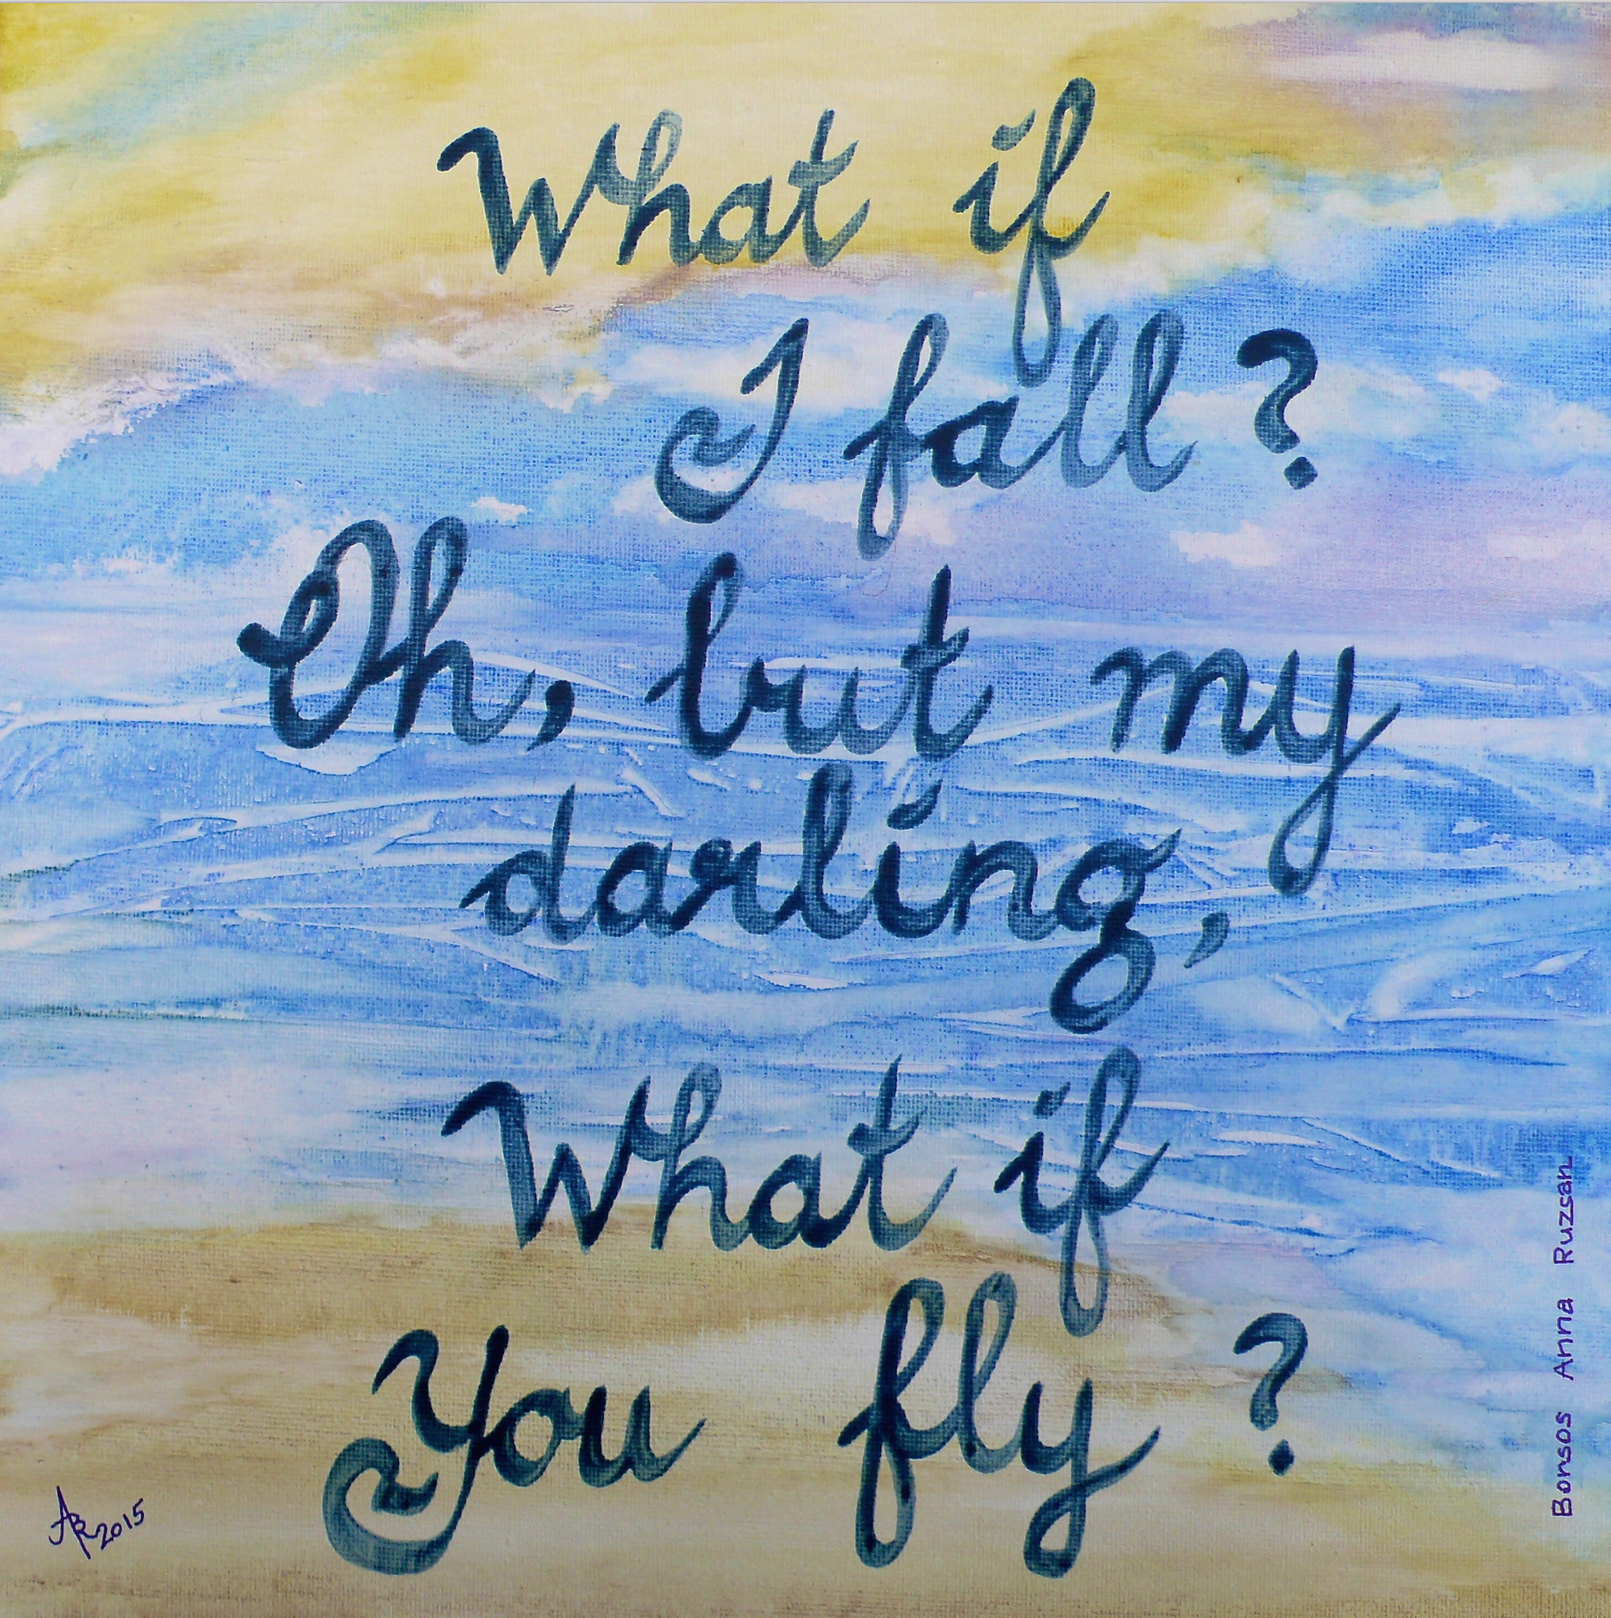 What if
I fall?
Oh, but my
darling,
What if
You fly?
ABR 2015
Bonsos Anna Ruzsan